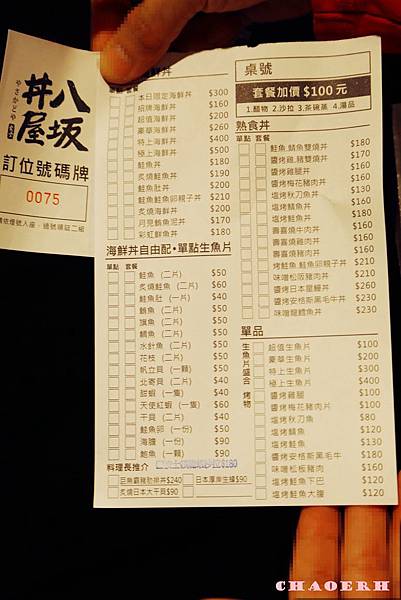 八坂
丼屋
やさかどや
訂位號碼牌
0075
單點 套餐
本日限定海鮮丼 $300
招牌海鮮丼 $160
超值海鮮丼 $200
豪華海鮮丼 $260
特上海鮮丼 $400
極上海鮮丼 $500
鮭魚丼 $180
炙燒鮭魚丼 $190
鮭魚肚丼 $200
鮭魚鮭魚卵親子丼 $210
炙燒海鮮丼 $200
月見鮪魚泥丼 $170
彩虹鮮魚丼 $180
海鮮丼自由配・單點生魚片
單點 套餐
鮭魚 (二片) $50
炙燒鮭魚 (二片) $60
鮭魚肚 (一片) $40
鮪魚 (二片) $50
旗魚 (二片) $50
鯛魚 (二片) $50
水針魚 (二片) $50
花枝 (二片) $50
帆立貝 (一顆) $50
北寄貝 (二片) $50
甜蝦 (一隻) $40
天使紅蝦 (一隻) $60
干貝 (二片) $40
鮭魚卵 (一份) $90
海膽 (一份) $90
鮑魚 (一顆) $90
料理長推介
巨無霸豬肋排丼$240
日本厚岸生蠔$90
炙燒日本大干貝$90
桌號
套餐加價 $100元
1.醋物 2.沙拉 3.茶碗蒸 4.湯品
熟食丼
單點 套餐
鮭魚,鯖魚雙燒丼 $180
醬烤雞,豬雙燒丼 $170
醬烤雞腿丼 $160
醬烤梅花豬肉丼 $160
塩烤秋刀魚丼 $140
塩烤鯖魚丼 $160
塩烤鮭魚丼 $180
壽喜燒牛肉丼 $160
壽喜燒雞肉丼 $160
壽喜燒豬肉丼 $160
烤鮭魚,鮭魚卵親子丼 $210
味噌松阪豬肉丼 $210
醬烤日本星鰻丼 $230
醬烤安格斯黑毛牛丼 $230
味噌龍鱈魚丼 $230
單品
生魚片盛合
超值生魚片 $100
豪華生魚片 $200
特上生魚片 $300
極上生魚片 $400
烤物
醬烤雞腿 $100
醬烤梅花豬肉片 $100
塩烤秋刀魚 $80
塩烤鯖魚 $120
塩烤鮭魚 $130
醬烤安格斯黑毛牛 $180
味噌松板豬肉 $160
塩烤鮭魚下巴 $120
塩烤鮭魚大腹 $120
CHAOERH